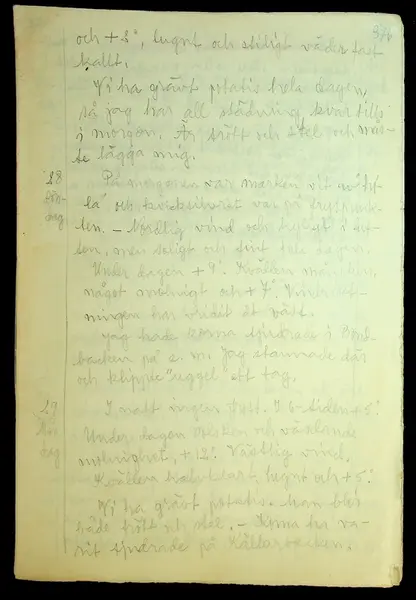 376
och + 3°, lugnt och soligt väder fast
kallt.
Vi ha grävt potatis hela dagen,
så jag har all städning kvar tills
i morgon. Är trött och stel och mås-
te lägga mig.
28
Sön-
dag
På morgonen var marken vit av
och kvicksilvret var på
ten. - Nordlig vind och kyligt i
men soligt och fint hela dagen.
Under dagen + 9°. Kvällen
något molnigt och + 7°. Vindrikt-
ningen har vridit åt väst.
Jag hade korna tjudrade i
backen på e. m. Jag stannade där
och klippte "uggel" ett tag.
29
Mån-
dag
I natt ingen frost. I 6-tiden + 5°.
Under dagen och växlande
molnighet, + 12°. Västlig vind.
Kvällen halvklart, lugnt och + 5°.
Vi ha grävt potatis. Man blir
både trött och stel. - Korna ha va-
rit tjudrade på Källarbacken.